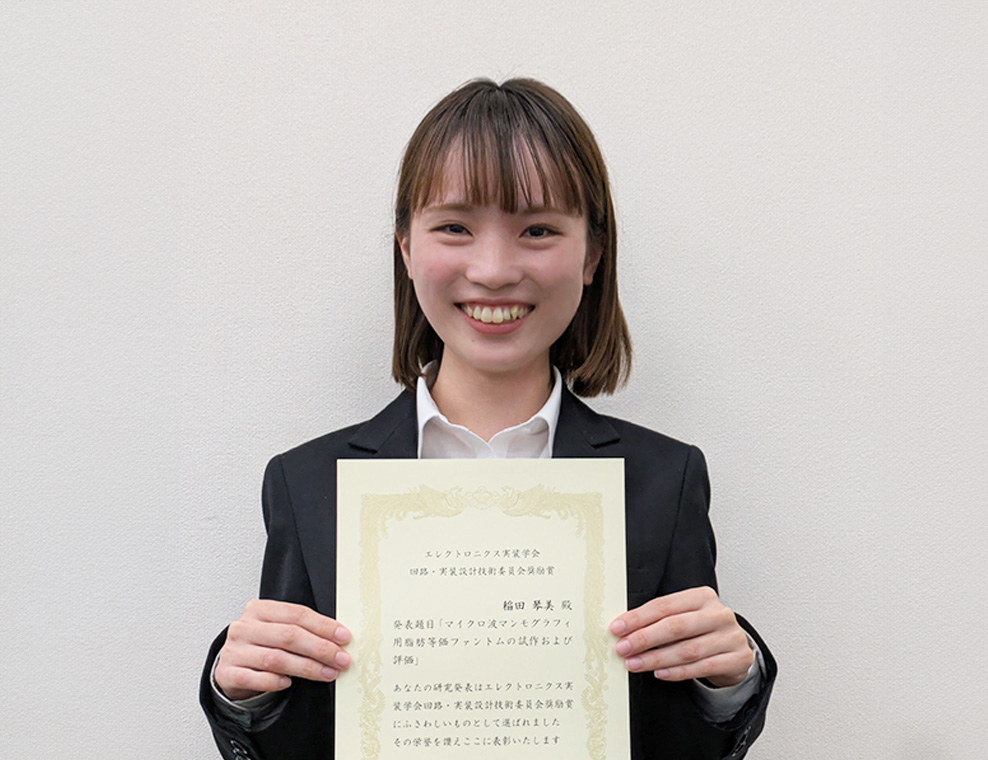 エレクトロニクス実装学会
回路・実装設計技術委員会奨励賞
稲田 琴美 殿
発表題目「マイクロ波マンモグラフィ
用脂肪等価ファントムの試作および
評価」
あなたの研究発表はエレクトロニクス実
装学会回路・実装設計技術委員会奨励賞
にふさわしいものとして選ばれました
その栄誉を讃えここに表彰いたします